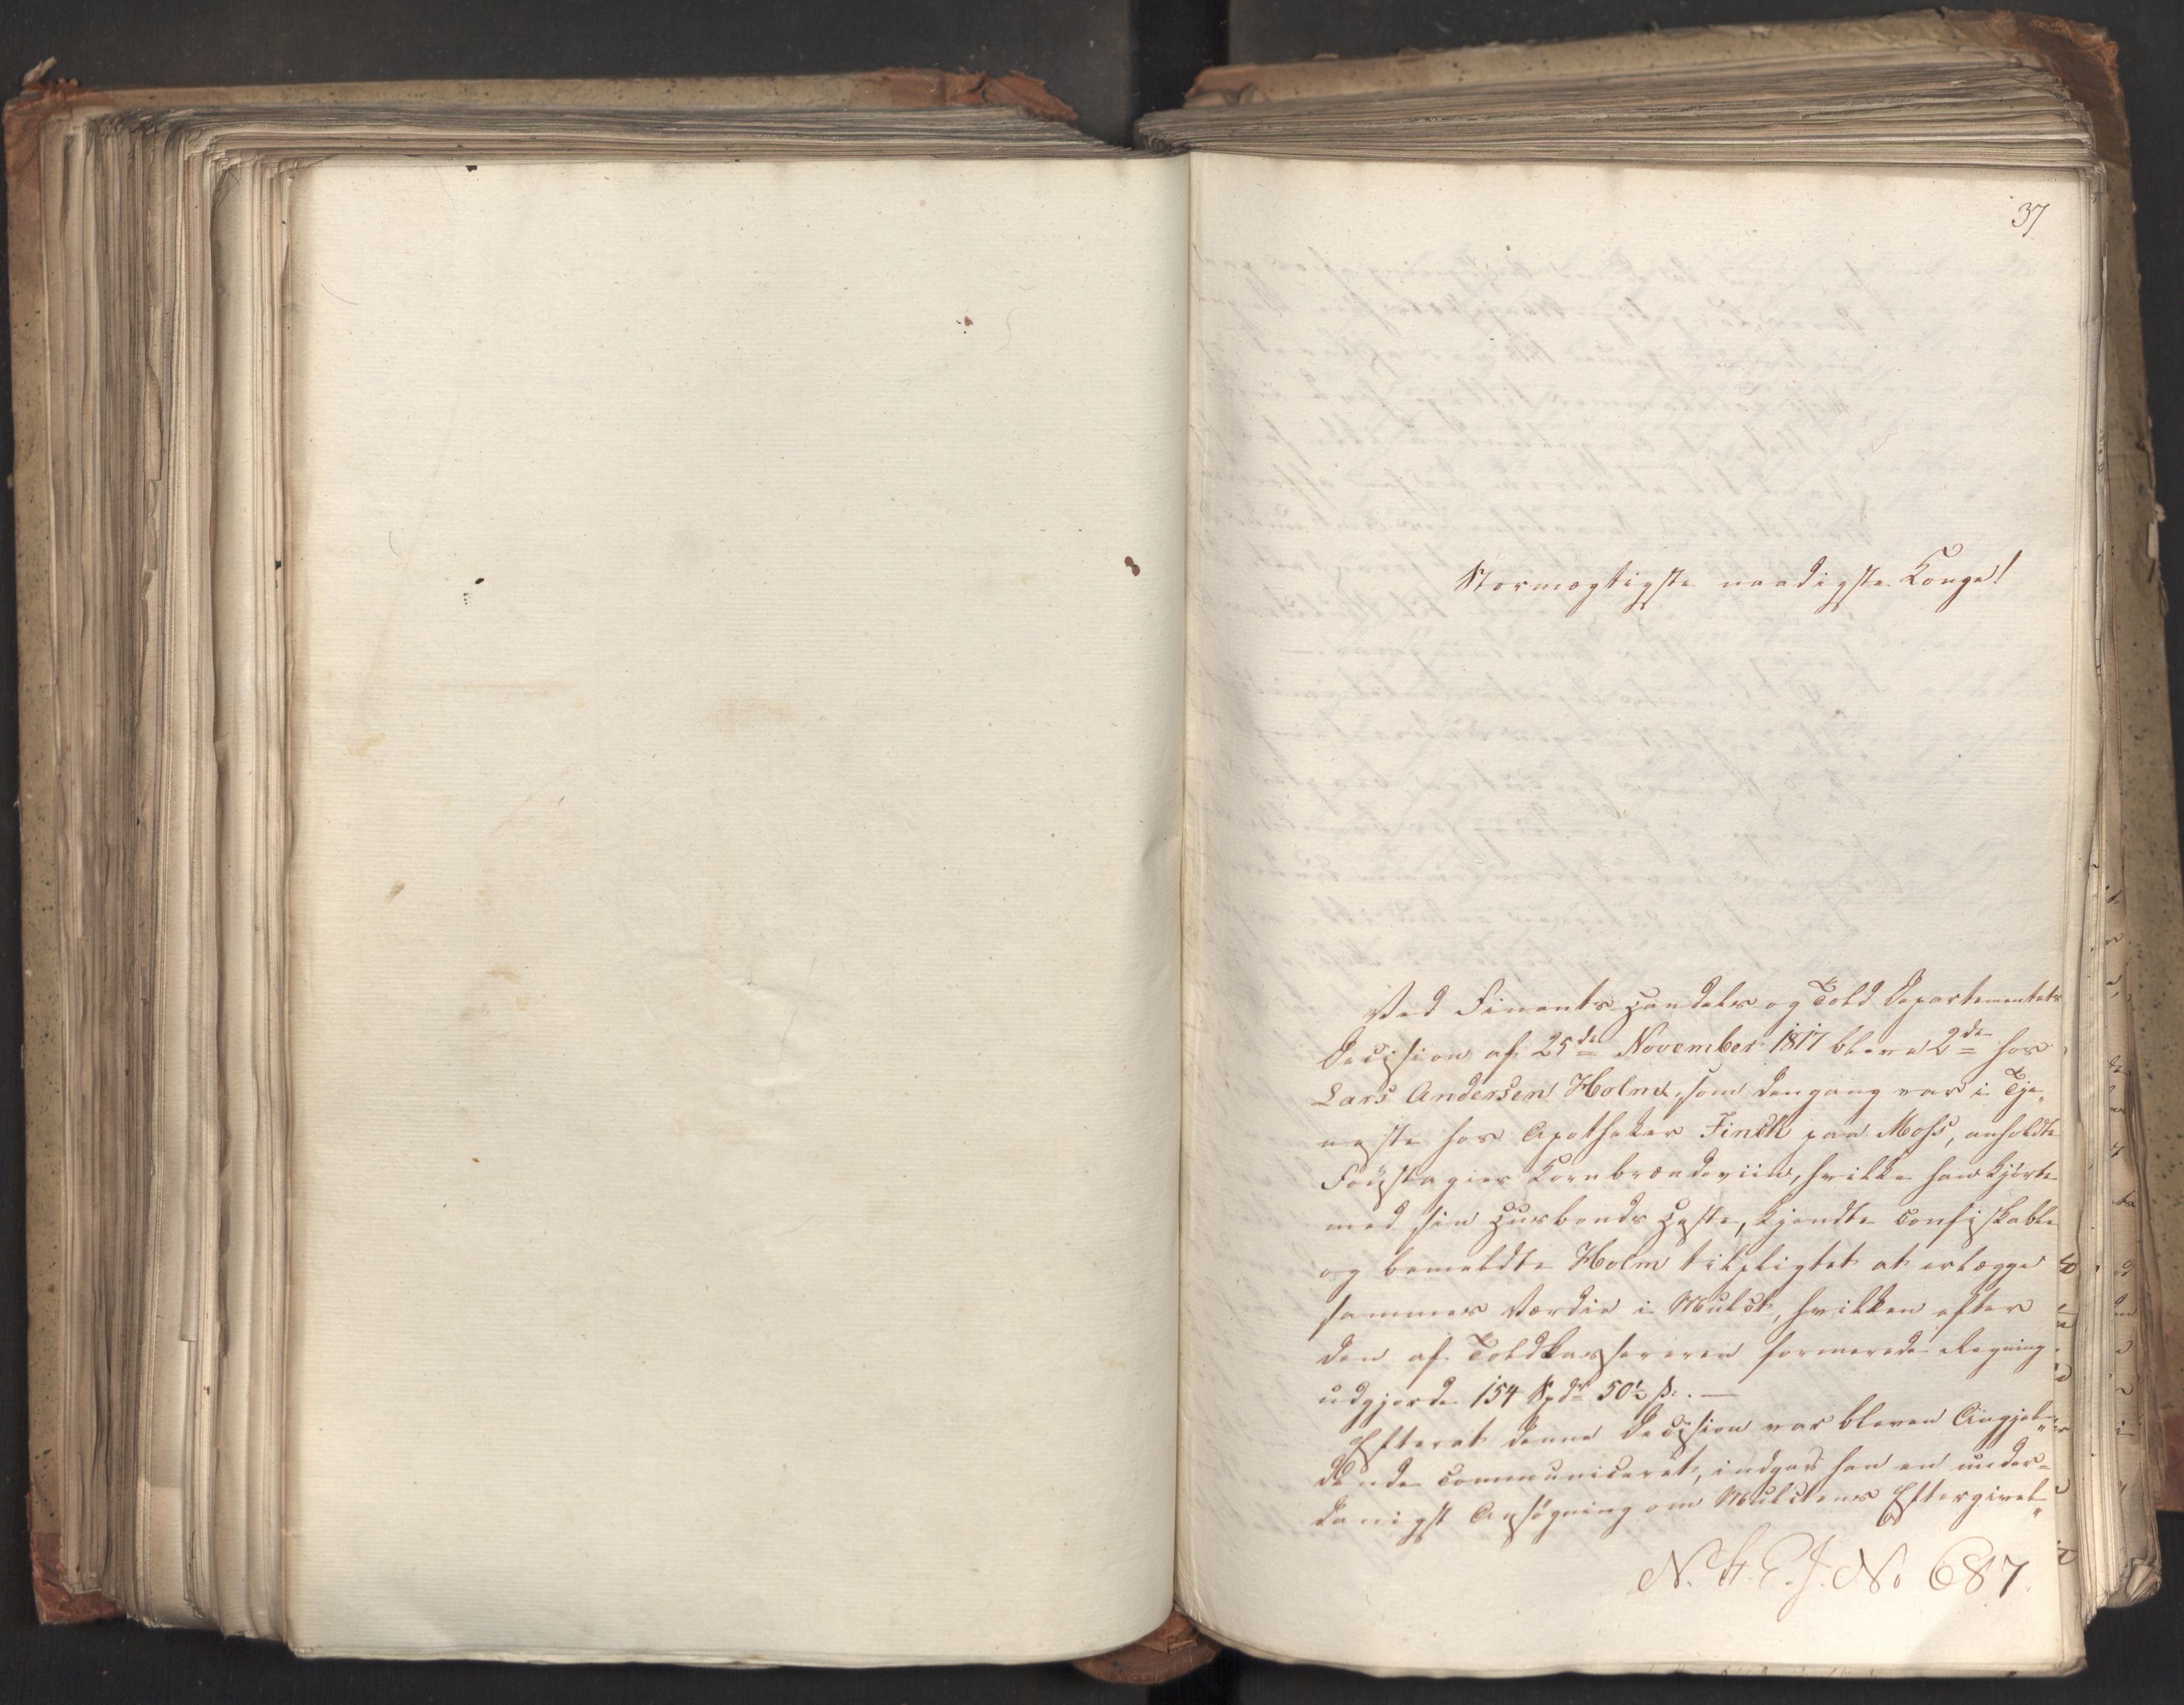 37
Stormægtigste naadigste Konge!
Ved Finants Handels og Told Departementets
Decision af 25de November 1817 bleve 2de hos
Lars Andersen Holm, som dengang var i Tje„
neste hos Apotheker Finch paa Moss, anholdte
Foustagier Kornbrændeviin, hvilke han kjørte
med sin Husbonds Heste, kjendte confiskable
og bemeldte Holm tilpligtet at erlægge
sammes Værdie i Mulct, hvilken efter
den af Toldkassereren formerede Regning
udgjorde 154 Spdr 50½ ß. —
Efterat denne Decision var bleven Angjel„
dende communiceret, indgav han en under-
danigst Ansøgning om Mulctens Eftergivel„
N. H. E. J. No 687.